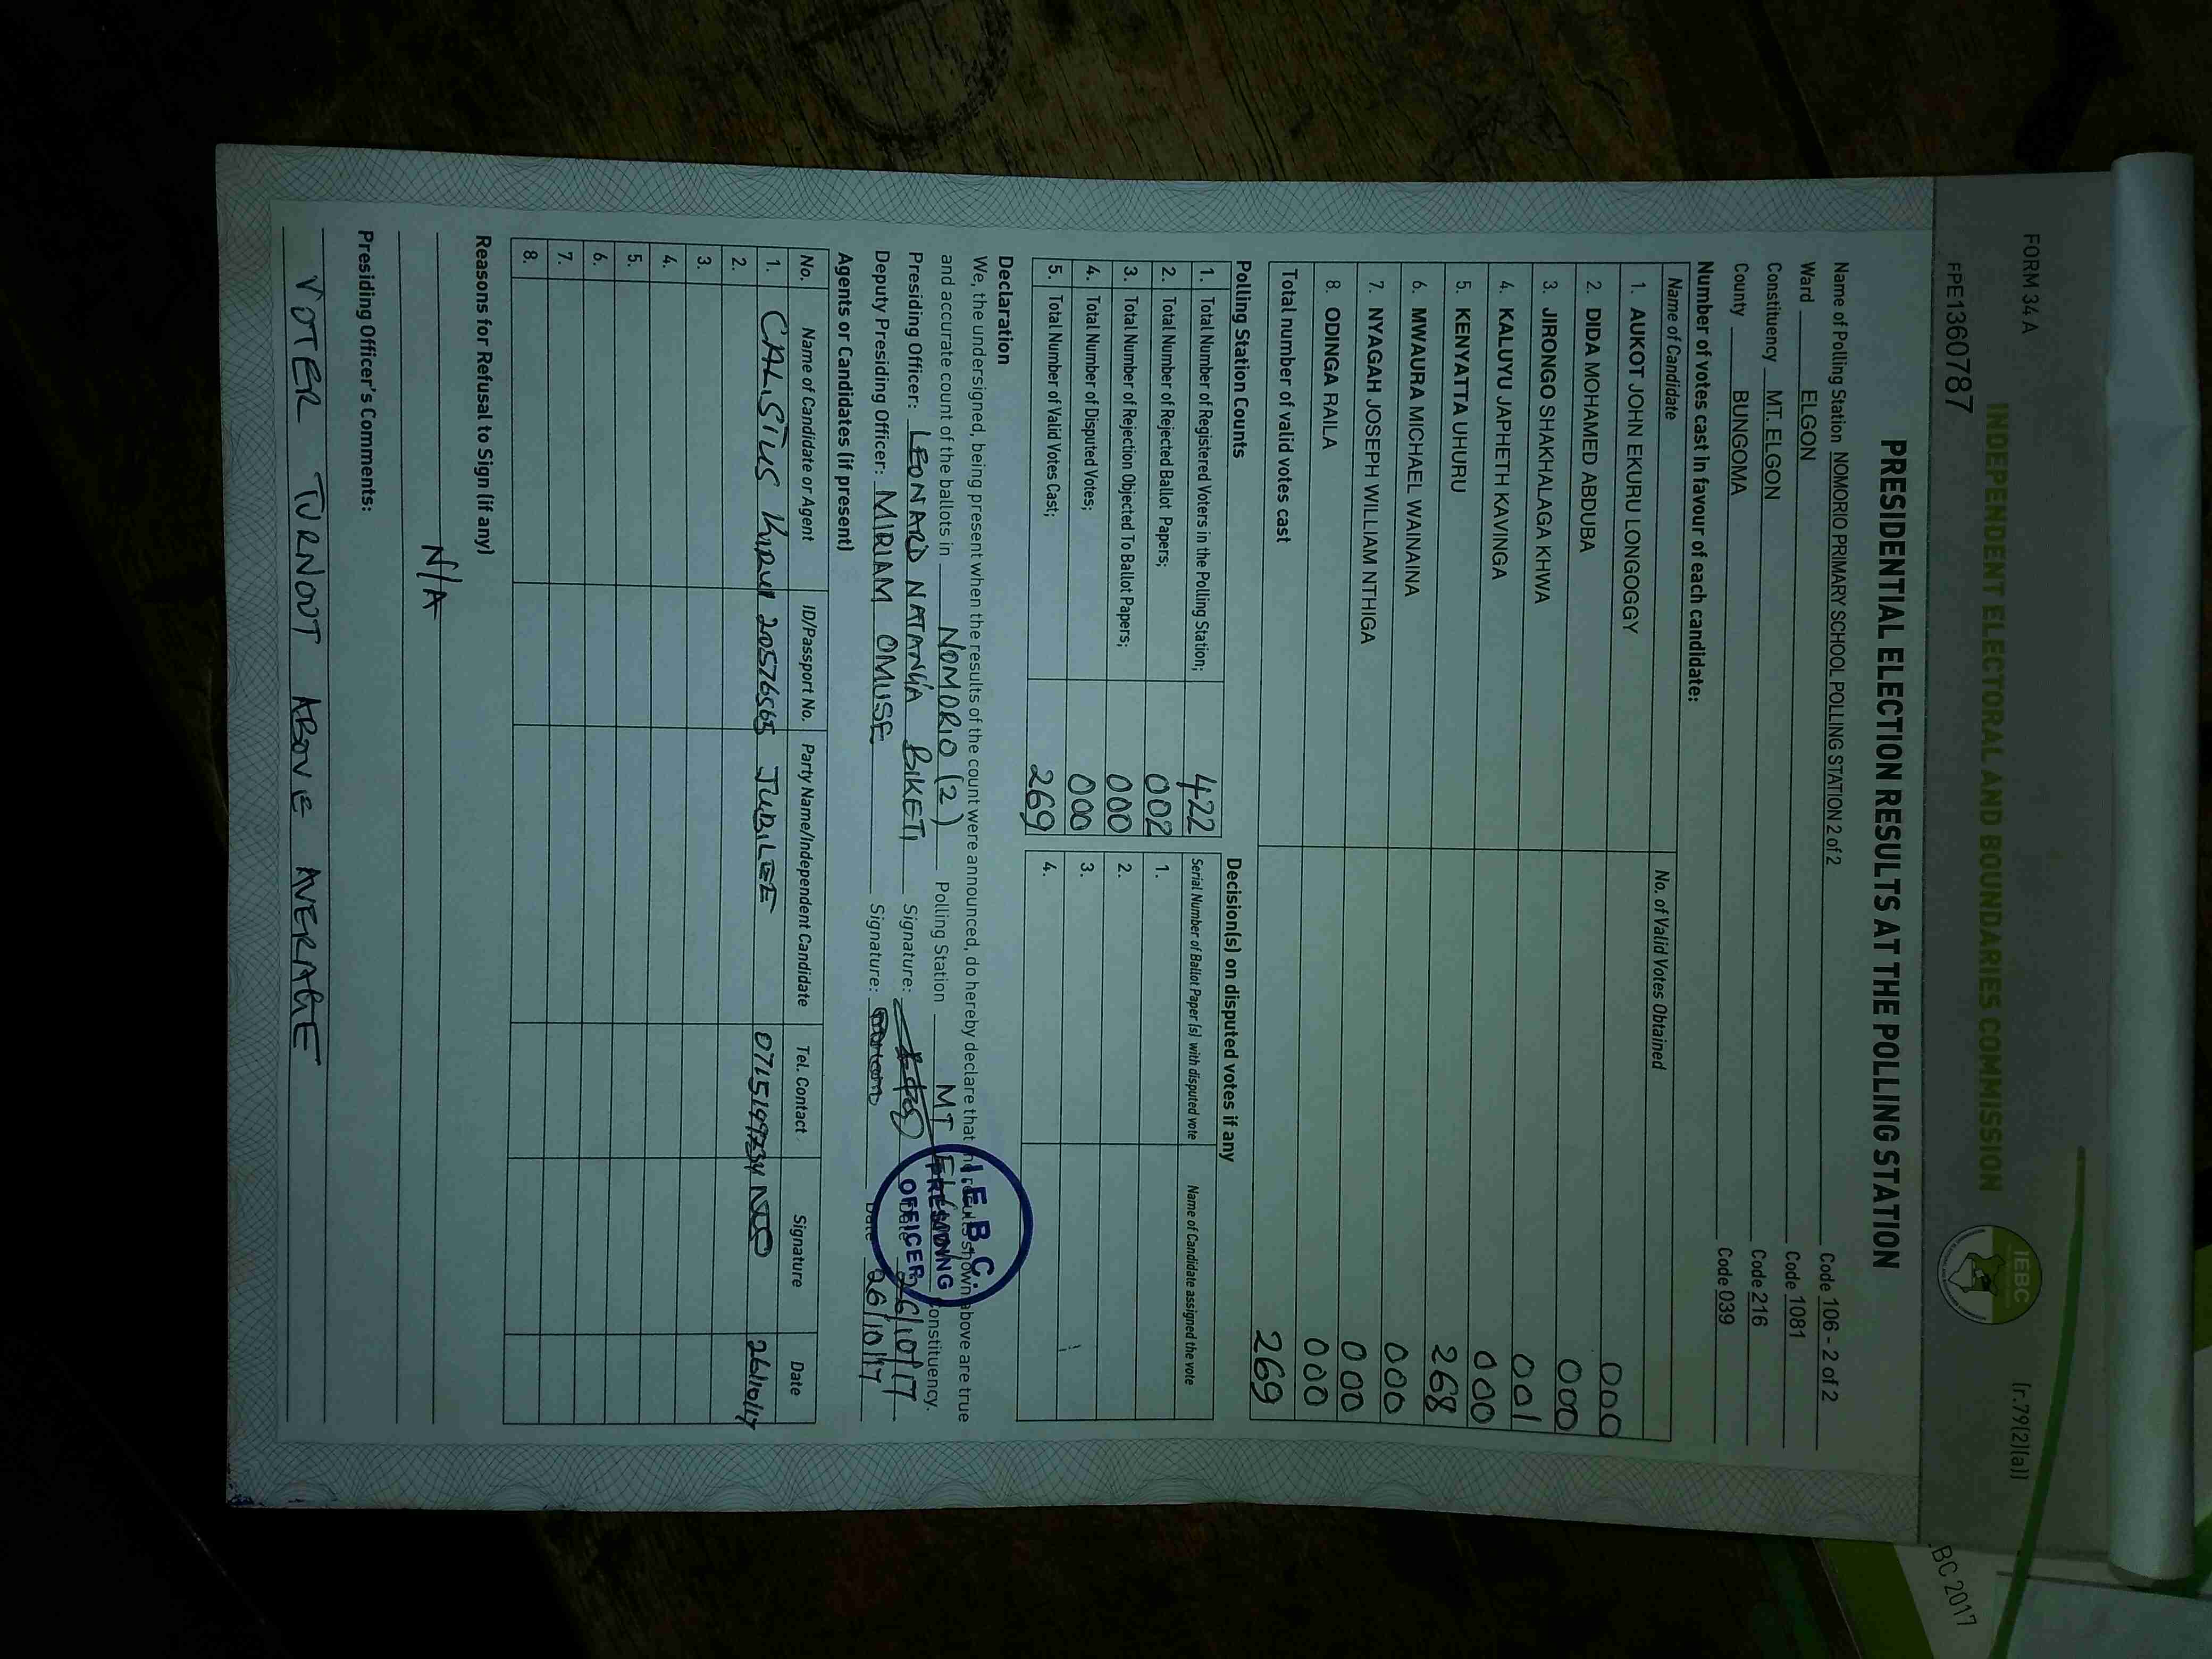 FORM 34 A
[r.79(2)(a)]
INDEPENDENT ELECTORAL AND BOUNDARIES COMMISSION
IEBC
FPE1360787
PRESIDENTIAL ELECTION RESULTS AT THE POLLING STATION
Name of Polling Station NOMORIO PRIMARY SCHOOL POLLING STATION 2 of 2 Code 106 - 2 of 2
Ward ELGON Code 1081
Constituency MT. ELGON Code 216
County BUNGOMA Code 039
Number of votes cast in favour of each candidate:
Name of Candidate No. of Valid Votes Obtained
1. AUKOT JOHN EKURU LONGOGGY 000
2. DIDA MOHAMED ABDUBA 000
3. JIRONGO SHAKHALAGA KHWA 001
4. KALUYU JAPHETH KAVINGA 000
5. KENYATTA UHURU 268
6. MWAURA MICHAEL WAINAINA 000
7. NYAGAH JOSEPH WILLIAM NTHIGA 000
8. ODINGA RAILA 000
Total number of valid votes cast 269
Polling Station Counts
1. Total Number of Registered Voters in the Polling Station; 422
2. Total Number of Rejected Ballot Papers; 002
3. Total Number of Rejection Objected To Ballot Papers; 000
4. Total Number of Disputed Votes; 000
5. Total Number of Valid Votes Cast; 269
Decision(s) on disputed votes if any
Serial Number of Ballot Paper (s) with disputed vote Name of Candidate assigned the vote
1.
2.
3.
4.
Declaration
We, the undersigned, being present when the results of the count were announced, do hereby declare that the results shown above are true
and accurate count of the ballots in NOMORIO (2) Polling Station MT Constituency.
Presiding Officer: LEONARD NATANGA BIKETI Signature: Date 26/10/17
Deputy Presiding Officer: MIRIAM OMUSE Signature: Date 26/10/17
I.E.B.C.
PRESIDING
OFFICER
Agents or Candidates (if present)
No. Name of Candidate or Agent ID/Passport No. Party Name/Independent Candidate Tel. Contact Signature Date
1. JUBILEE 26/10/17
2.
3.
4.
5.
6.
7.
8.
Reasons for Refusal to Sign (if any)
N/A
Presiding Officer's Comments:
VOTER TURNOUT ABOVE AVERAGE
BC 2017